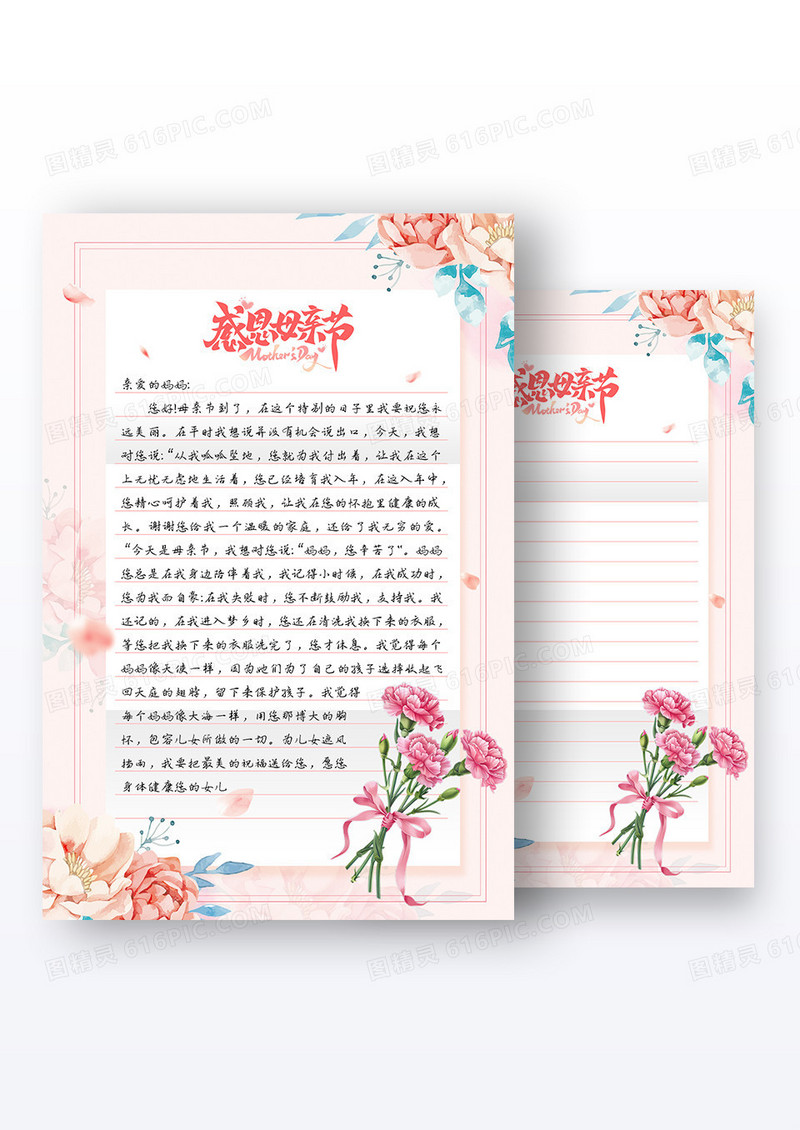 图精灵 616PIC.COM
图精灵 616PIC.COM
感恩母亲节
Mother's Day
亲爱的妈妈:
您好!母亲节到了，在这个特别的日子里我要祝您永
远美丽。在平时我想说并没有机会说出口，今天，我想
对您说:“从我呱呱坠地，您就为我付出着，让我在这个
上无忧无虑地生活着，您已经培育我入年，在这入年中，
您精心呵护着我，照顾我，让我在您的怀抱里健康的成
长。谢谢您给我一个温暖的家庭，还给了我无穷的爱。
“今天是母亲节，我想对您说:“妈妈，您辛苦了"。妈妈
您总是在我身边陪伴着我，我记得小时候，在我成功时，
您为我而自豪:在我失败时，您不断鼓励我，支持我。我
还记的，在我进入梦乡时，您还在清洗我换下来的衣服，
等您把我换下来的衣服洗完了，您才休息。我觉得每个
妈妈像天使一样，因为她们为了自己的孩子选择收起飞
回天庭的翅膀，留下来保护孩子。我觉得
每个妈妈像大海一样，用您那博大的胸
怀，包容儿女所做的一切。为儿女遮风
挡雨，我要把最美的祝福送给您，愿您
身体健康您的女儿
感恩母亲节
Mother's Day
图精灵 616PIC.COM
图精灵 616PIC.COM